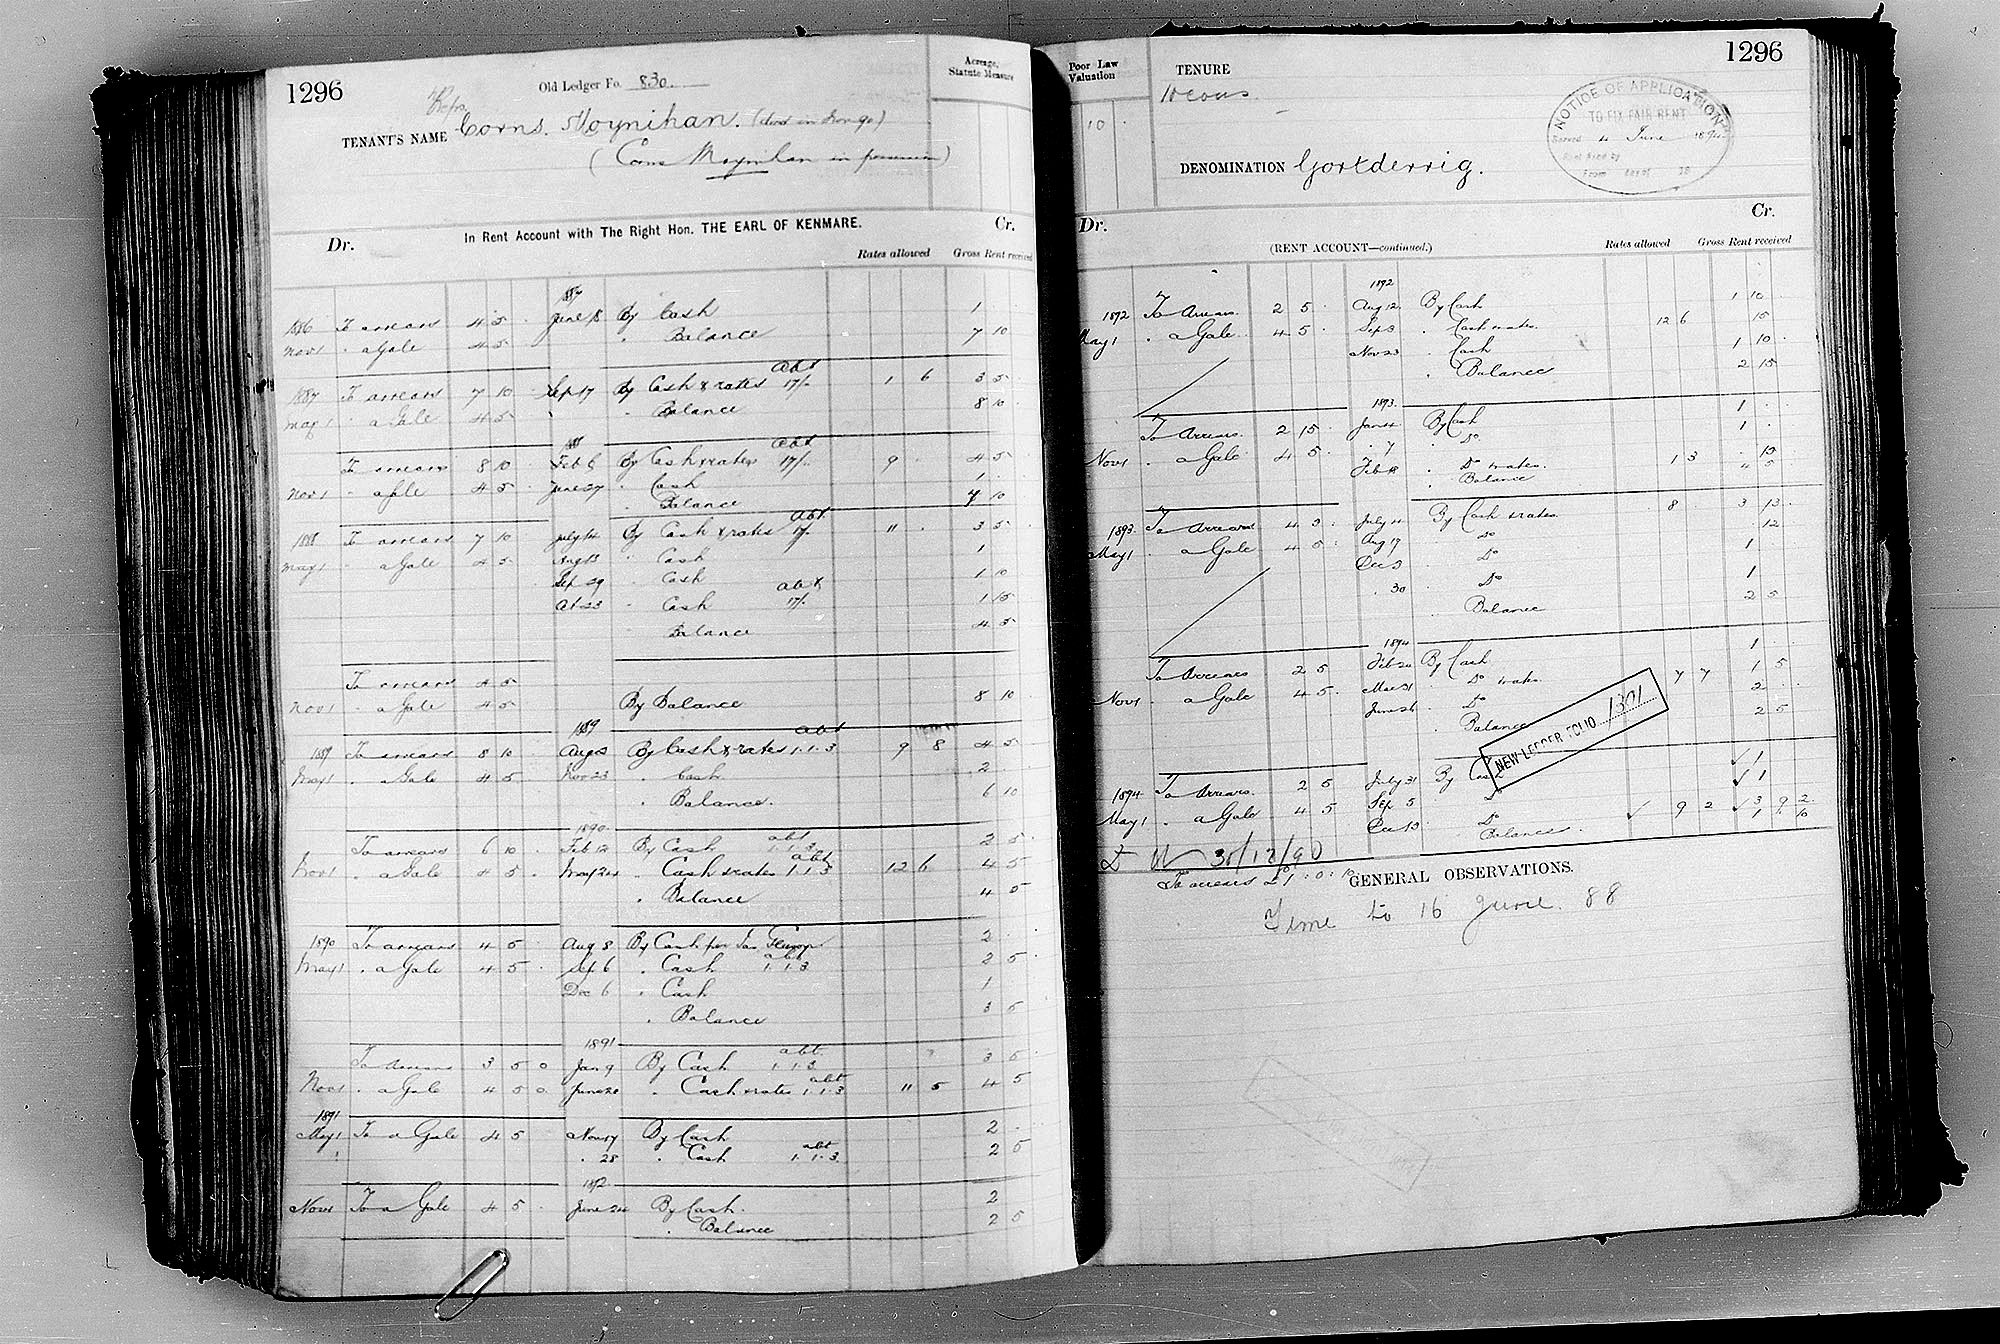 1296
Old Ledger Fo. 830.
Acreage, Statute Measure
TENANT'S NAME Corns. Moynihan. (died in Nov 90)
(Corns Moynihan in possession)
In Rent Account with The Right Hon. THE EARL OF KENMARE.
Dr. Cr.
Rates allowed Gross Rent received
1887
1886 To arrears 4 5 June 18 By Cash 1
Nov 1 " a Gale 4 5 " Balance 7 10
abt
1887 To arrears 7 10 Sep 17 By Cash & rates 17/- 1 6 3 5
May 1 " a Gale 4 5 " Balance 8 10
1888 abt
To arrears 8 10 Feb 6 By Cash & rates 17/- 9 4 5
Nov 1 " a Gale 4 5 June 27 " Cash 1
Balance 7 10
abt
1888 To arrears 7 10 July 14 By Cash & rates 17/- 11 3 5
May 1 " a Gale 4 5 Aug 13 " Cash 1
Sep 29 " Cash 1 10
abt
Oct 23 " Cash 17/- 1 15
Balance 4 5
To arrears 4 5
Nov 1 " a Gale 4 5 By Balance 8 10
1889 abt
1889 To arrears 8 10 Aug 2 By Cash & rates 1.1.3 9 8 4 5
May 1 " a Gale 4 5 Nov 23 " Cash 2
" Balance. 6 10
1890 abt
To arrears 6 10 Feb 12 By Cash 1.1.3 2 5
abt
Nov 1 " a Gale 4 5 May 24 " Cash & rates 1.1.3 12 6 4 5
" Balance 4 5
1890 To arrears 4 5 Aug 8 By Cash per Jas 2
abt
May 1 " a Gale 4 5 Sep 6 " Cash 1.1.3 2 5
Dec 6 " Cash 1
" Balance 3 5
1891 abt
To arrears 3 5 0 Jan 9 By Cash 1.1.3 3 5
abt
Nov 1 " a Gale 4 5 0 June 20 " Cash & rates 1.1.3 11 5 4 5
1891
May 1 To a Gale 4 5 Nov 17 By Cash 2
abt
" 28 " Cash 1.1.3 2 5
1892
Nov 1 To a Gale 4 5 June 24 By Cash. 2
" Balance 2 5
1296
Poor Law Valuation
10
TENURE
DENOMINATION Gortderrig.
NOTICE OF APPLICATION
TO FIX FAIR RENT
Served 4 June 1894
Rent fixed by
From day of 18
Dr. Cr.
(RENT ACCOUNT—continued.)
Rates allowed Gross Rent received
1892
1892 To Arrears. 2 5 Aug 12 By Cash 1 10
May 1 " a Gale 4 5 Sep 3 " Cash & rates. 12 6 15
Nov 23 " Cash 1 10
" Balance 2 15
1893
To Arrears. 2 15 Jan 4 By Cash 1
Nov 1 " a Gale 4 5 " 7 Do 1
Feb 18 " Do & rates. 1 3 15
" Balance 4 5
1893 To Arrears 4 5 July 4 By Cash & rates 8 3 13
May 1 " a Gale 4 5 Aug 19 Do 12
Dec 3 Do 1
" 30 Do 1
Balance 2 5
1894
To Arrears 2 5 Feb 20 By Cash 1
Nov 1 a Gale 4 5 Mar 31 " Do & rates. 7 7 1 5
June 26 " Do 2
Balance 2 5
NEW LEDGER FOLIO 1301
1894 To Arrears. 2 5 July 31 By Cash 1
May 1 " a Gale 4 5 Sep 5 " Do 1
Dec 13 Do 9 2 3 9 2
Balance. 1 10
To arrears £1 : 0 : 10
GENERAL OBSERVATIONS.
Time to 16 June. 88